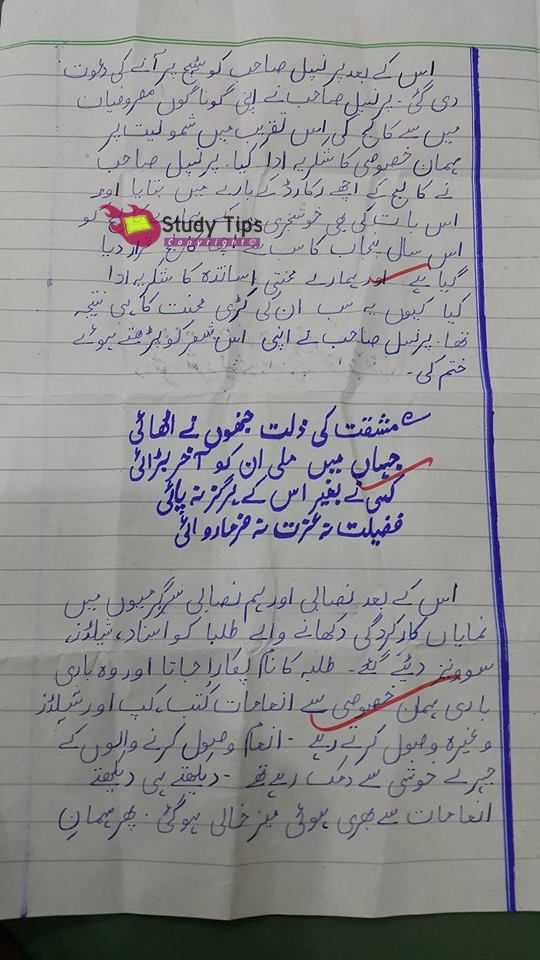 اس کے بعد پرنسپل صاحب کو سٹیج پر آنے کی دعوت
دی گئی۔ پرنسپل صاحب نے اپنی گوناگوں مصروفیات
میں سے کالج کی اس تقریب میں شمولیت پر
مہمان خصوصی کا شکریہ ادا کیا۔ پرنسپل صاحب
نے کالج کے اچھے رکارڈ کے بارے میں بتایا اور
اس بات کی بھی خوشخبری کو
Study Tips
Copyright©
اس سال پنجاب کا سب قرار دیا
گیا ہے۔ اور ہمارے محنتی اساتذہ کا شکریہ ادا
کیا کیوں یہ سب ان کی کڑی محنت کا ہی نتیجہ
تھا۔ پرنسپل صاحب نے اپنی اس شعر کو پڑھتے ہوئے
ختم کی۔
مشقت کی ذلت جنھوں نے اٹھائی
جہاں میں ملی ان کو آخر بڑائی
کسی نے بغیر اس کے ہرگز نہ پائی
فضیلت نہ عزت نہ فرمانروائی
اس کے بعد نصابی اور ہم نصابی سرگرمیوں میں
نمایاں کارکردگی دکھانے والے طلبا کو اسناد، شیلڈز،
سوونیز دیئے گئے۔ طلبہ کا نام پکارا جاتا اور وہ باری
باری مہمان خصوصی سے انعامات کتب، کپ اور شیلڈز
وغیرہ وصول کرتے رہے۔ انعام وصول کرنے والوں کے
چہرے خوشی سے دمک رہے تھے۔ دیکھتے ہی دیکھتے
انعامات سے بھری ہوئی میز خالی ہوگئی۔ پھر مہمانِ